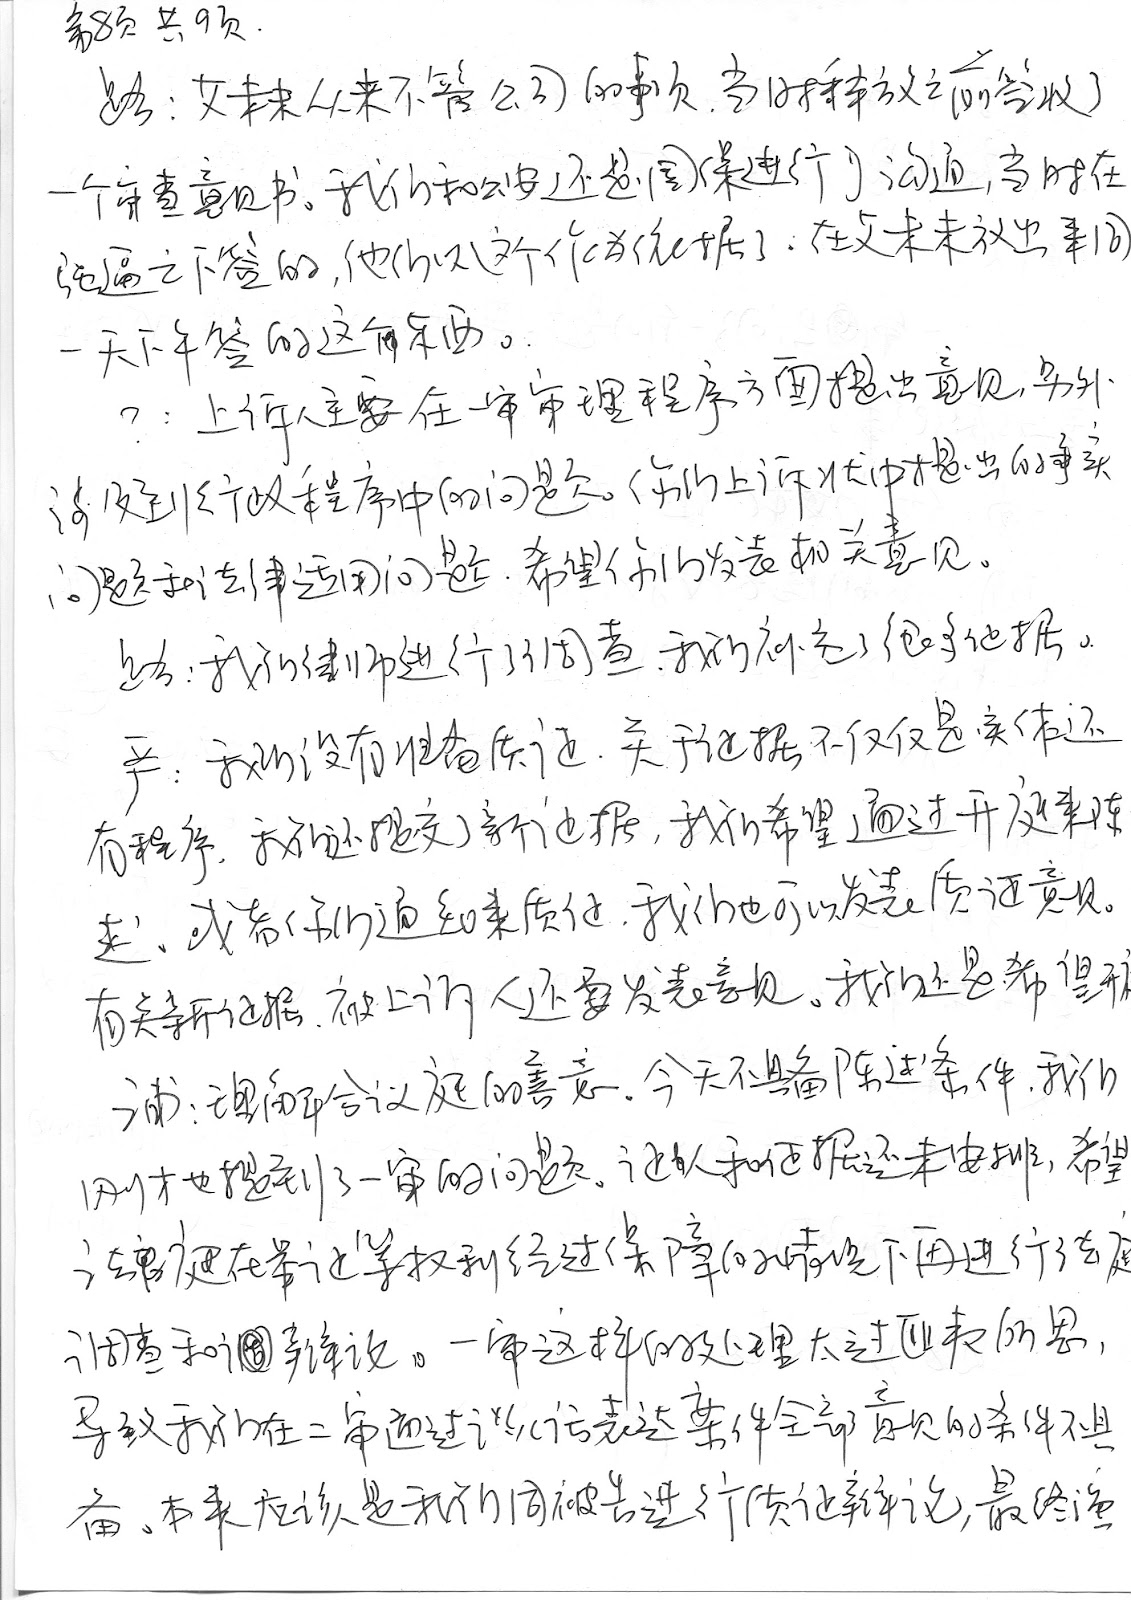 第8页 共9页.
路:艾未未从来不管公司的事项,当时释放之前签收了
一个审查意见书。我们和公安还是国保进行了沟通,当时在
强逼之下签的,他们以这个作为依据了.在艾未未放出来同
一天下午签的这个东西。
?:上诉人主要在一审审理程序方面提出意见,另外
涉及到行政程序中的问题。你们上诉状中提出的事实
问题和法律适用问题.希望你们发表相关意见。
路:我们律师进行了调查,我们补充了很多证据。
严:我们没有准备质证.关于证据不仅仅是实体还
有程序,我们还提交了新证据,我们希望通过开庭来陈
述、或者你们通知来质证,我们也可以发表质证意见。
有关新证据,被上诉人还要发表意见。我们还是希望开庭
浦:理解合议庭的善意。今天不具备陈述条件,我们
刚才也提到了一审的问题。证人和证据还未安排,希望
法庭在举证等权利经过保障的情况下再进行法庭
调查和辩论。一审这样的处理太过匪夷所思,
导致我们在二审通过谈话表达案件全部意见的条件不具
备。本来应该是我们同被告进行质证辩论,最终演